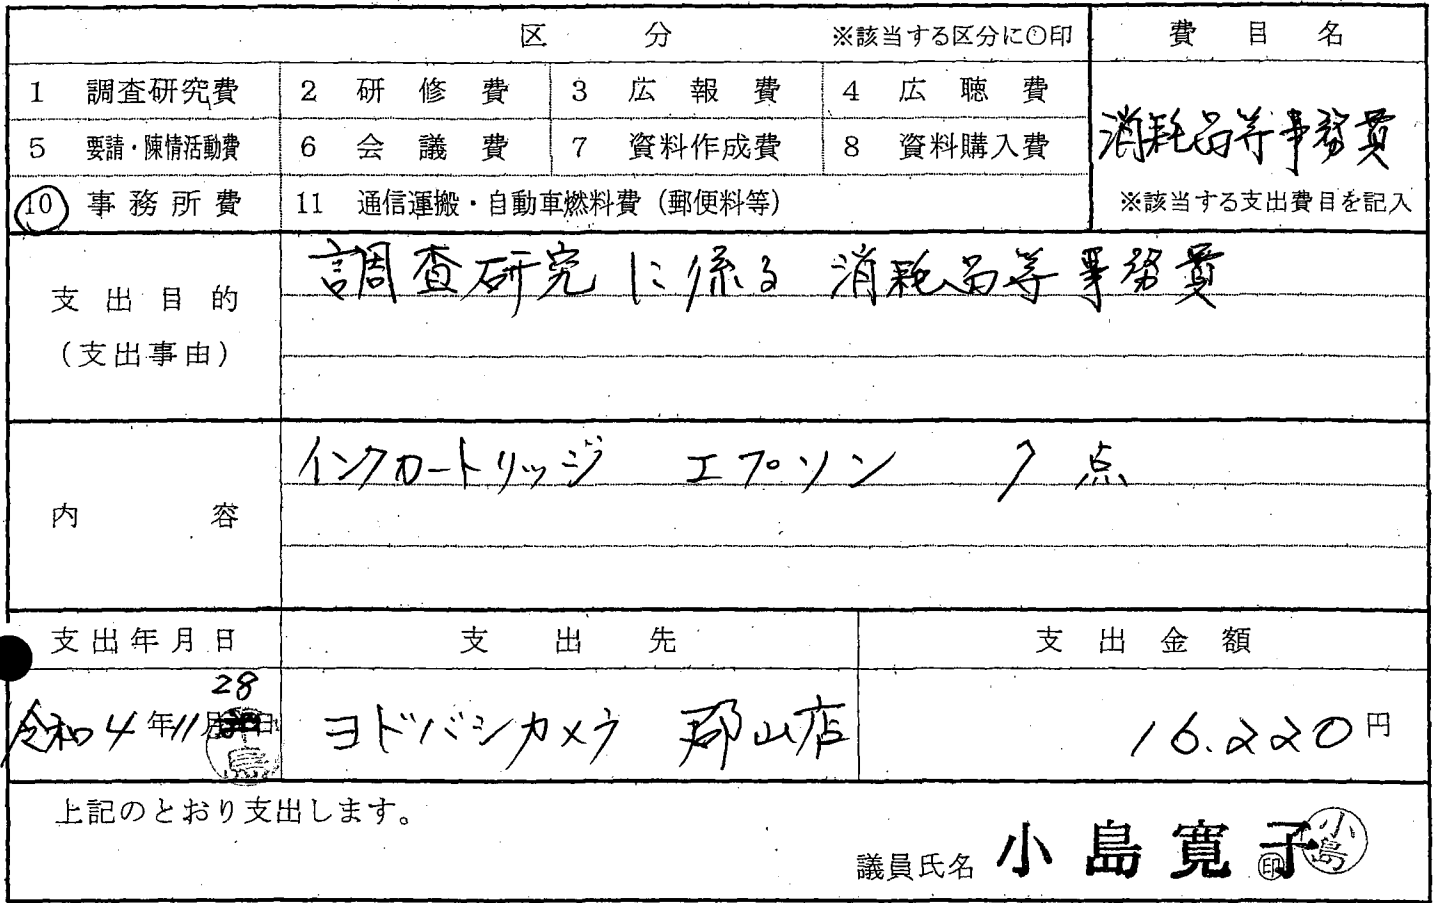 区 分 ※該当する区分に○印 費 目 名
1 調査研究費 2 研 修 費 3 広 報 費 4 広 聴 費
5 要請・陳情活動費 6 会 議 費 7 資料作成費 8 資料購入費
消耗品等事務費
10 事務所費 11 通信運搬・自動車燃料費（郵便料等） ※該当する支出費目を記入
支 出 目 的
（支出事由）
調査研究に係る 消耗品等事務費
内 容
インクカートリッジ エプソン 7点
支出年月日 支 出 先 支 出 金 額
28
令和4年11月日 ヨドバシカメラ 郡山店 16.220円
小島
上記のとおり支出します。
議員氏名 小島寛子 ㊞ 小島